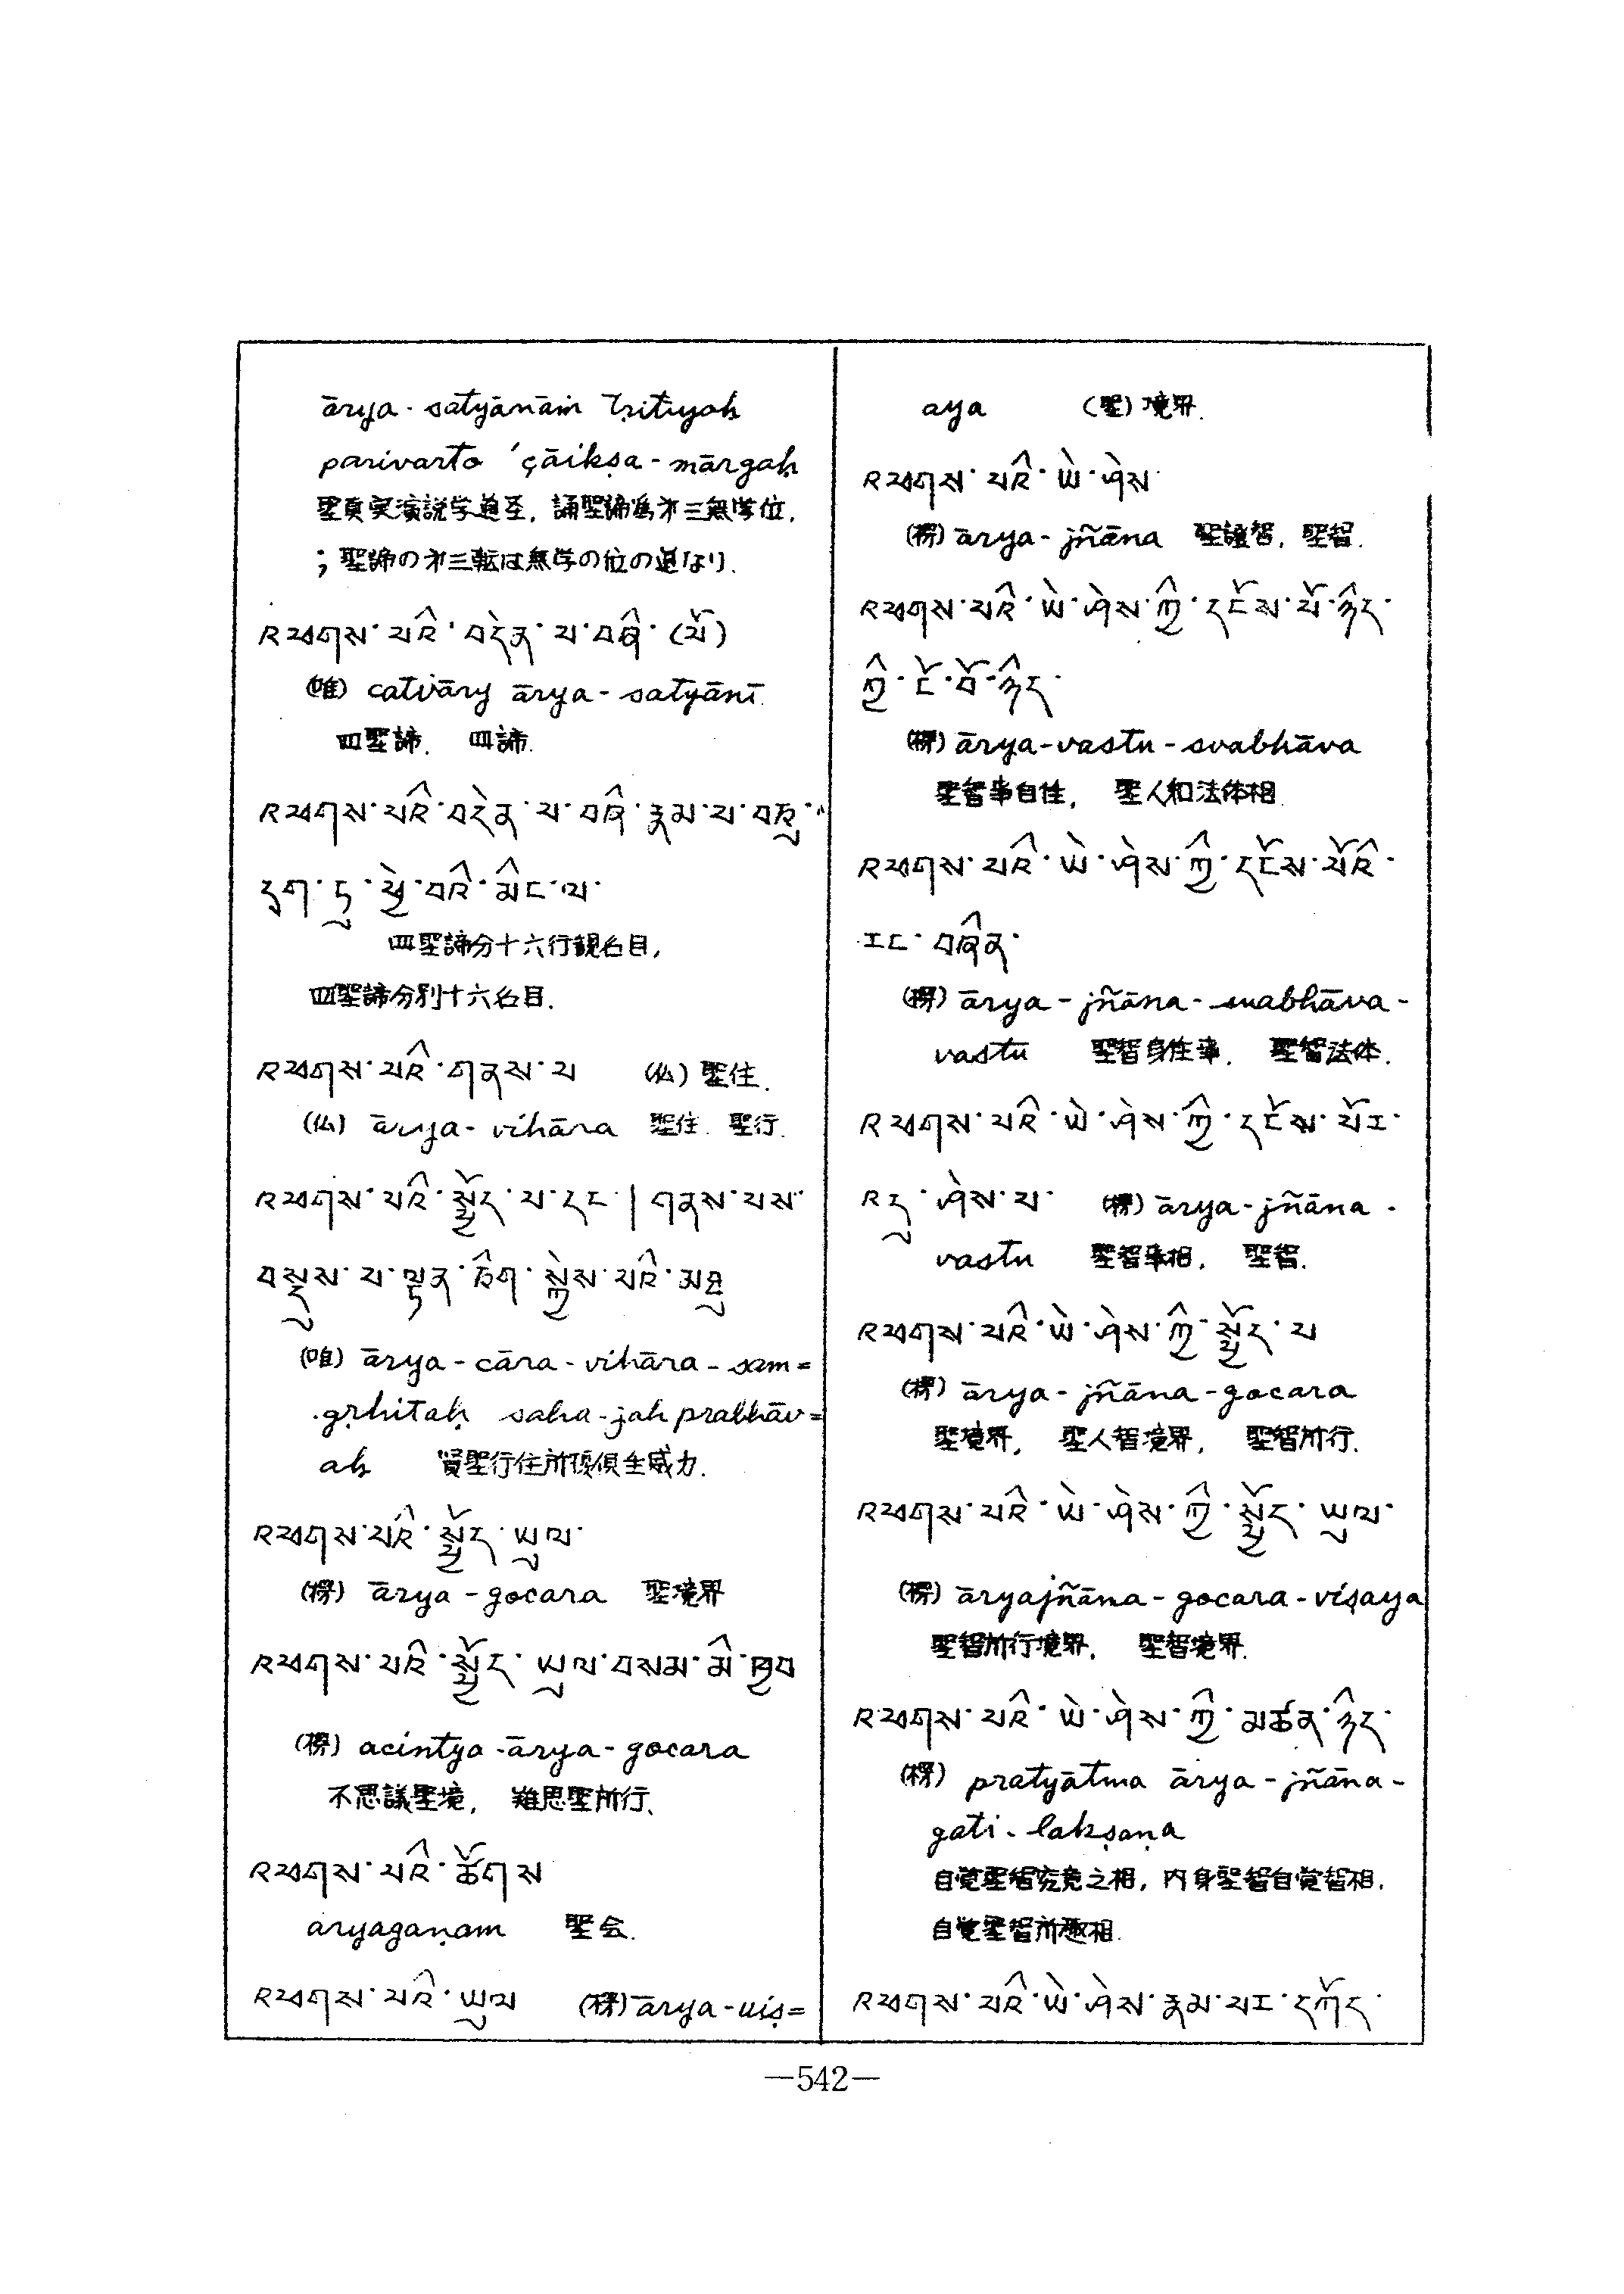 ārya-satyānāṁ tṛitiyaḥ
parivarto 'çāikṣa-mārgaḥ
聖真実演説学道至, 誦聖諦為才三無学位,
; 聖諦の才三転は無学の位の道なり.
འཕགས་པའི་བདེན་པ་བཞི་(པོ)
(唯) catvāry ārya-satyānī
四聖諦. 四諦.
འཕགས་པའི་བདེན་པ་བཞི་རྣམ་པ་བཅུ་
དྲུག་ཏུ་ཕྱེ་བའི་མིང་ལ་
四聖諦分十六行観名目,
四聖諦分別十六名目.
འཕགས་པའི་གནས་པ (仏) 聖住.
(仏) ārya-vihāra 聖住. 聖行.
འཕགས་པའི་སྤྱོད་པ་དང་།གནས་པས་
བསྡུས་པ་ལྷན་ཅིག་སྐྱེས་པའི་མཐུ
(唯) ārya-cāra-vihāra-sam=
gṛhitaḥ saha-jah prabhāv=
aḥ 賢聖行住所摂倶生威力.
འཕགས་པའི་སྤྱོད་ཡུལ་
(楞) ārya-gocara 聖境界
འཕགས་པའི་སྤྱོད་ཡུལ་བསམ་མི་ཁྱབ
(楞) acintya-ārya-gocara
不思議聖境, 難思聖所行.
འཕགས་པའི་ཚོགས
aryagaṇam 聖会.
འཕགས་པའི་ཡུལ (楞) ārya-viṣ=
aya (聖) 境界.
འཕགས་པའི་ཡེ་ཤེས་
(楞) ārya-jñāna 聖證智, 聖智.
འཕགས་པའི་ཡེ་ཤེས་ཀྱི་དངོས་པོ་ཉིད་
ཀྱི་ངོ་བོ་ཉིད་
(楞) ārya-vastu-svabhāva
聖智事自性, 聖人知法体相.
འཕགས་པའི་ཡེ་ཤེས་ཀྱི་དངོས་པོའི་
རང་བཞིན་
(楞) ārya-jñāna-svabhāva-
vastu 聖智身性事. 聖智法体.
འཕགས་པའི་ཡེ་ཤེས་ཀྱི་དངོས་པོར་
འདུ་ཤེས་པ་ (楞) ārya-jñāna-
vastu 聖智事相, 聖智.
འཕགས་པའི་ཡེ་ཤེས་ཀྱི་སྤྱོད་པ
(楞) ārya-jñāna-gocara
聖境界, 聖人智境界, 聖智所行.
འཕགས་པའི་ཡེ་ཤེས་ཀྱི་སྤྱོད་ཡུལ་
(楞) āryajñāna-gocara-viṣaya
聖智所行境界, 聖智境界.
འཕགས་པའི་ཡེ་ཤེས་ཀྱི་མཚན་ཉིད་
(楞) pratyātma ārya-jñāna-
gati-lakṣaṇa
自覚聖智究竟之相, 内身聖智自覚智相,
自覚聖智所趣相.
འཕགས་པའི་ཡེ་ཤེས་རྣམ་པར་དཀོད་
—542—